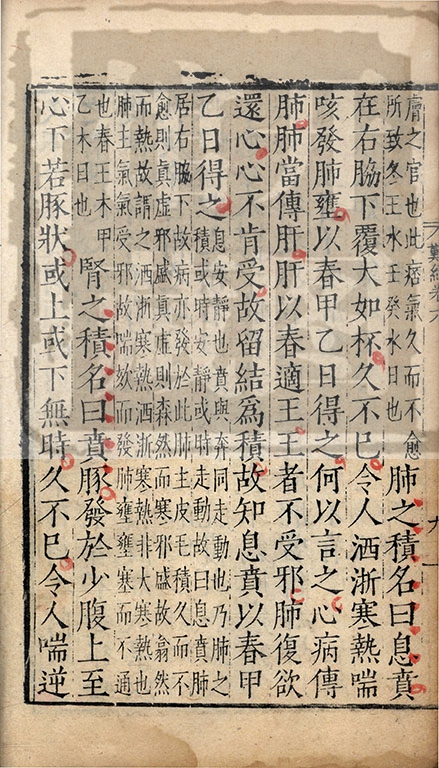 膚之官也此痞氣久而不愈
所致冬王水壬癸水日也
肺之積名曰息賁
在右脇下覆大如杯久不巳令人洒淅寒熱喘
咳發肺壅以春甲乙日得之何以言之心病傳
肺肺當傳肝肝以春適王王者不受邪肺復欲
還心心不肯受故留結爲積故知息賁以春甲
乙日得之
息安靜也賁與奔同走動也乃肺之
積或時安靜或時走動故曰息賁肺
居右脇下故病亦發於此肺主皮毛積久而不
愈則眞虛邪盛眞虛則森然而寒邪盛故翕然
而熱故謂之洒淅寒熱洒淅寒熱非大寒熱也
肺主氣氣受邪故喘欬而發肺壅壅塞而不通
也春王木甲
乙木日也
腎之積名曰賁豚發於少腹上至
心下若豚狀或上或下無時久不巳令人喘逆